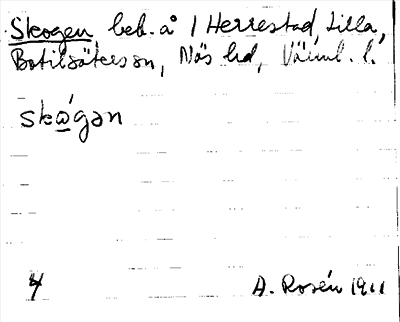 Skogen beb. å 1 Herrestad, Lilla,
Botilsäters sn, Näs hd, Värml. l.
skώgən
4
A. Rosén 1911